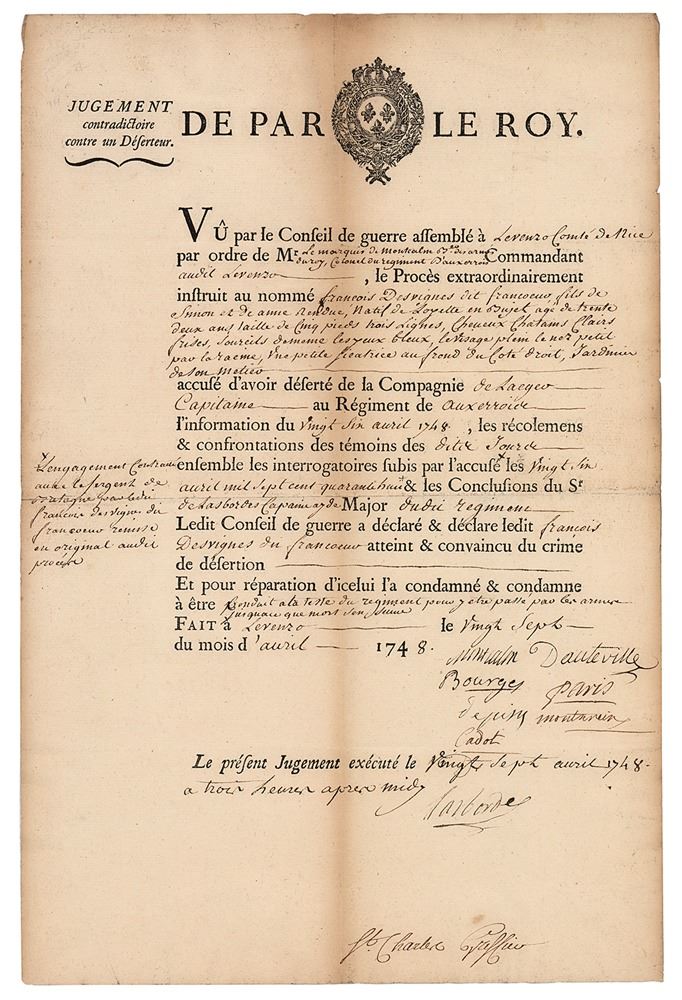 JUGEMENT
contradictoire
contre un Déserteur.
DE PAR LE ROY.
VÛ par le Conseil de guerre assemblé à Levenzo Comté de Nice
par ordre de Mr Le marquis de Montcalm Bder des armées
du roy, Colonel du regiment D'auxerrois Commandant
audit Levenzo, le Procès extraordinairement
instruit au nommé françois Desvignes dit francoeur, fils de
Simon et de anne Rendue, Natif de Loyette en Bujet, agé de trente
deux ans, taille de Cinq pieds trois Lignes, Cheveux Chatams Clairs
frisés, sourcils de meme les yeux bleux, le visage plein le nez petit
par la racine, Une petite Cicatrice au frond du Coté droit, Jardinier
de son metier
accusé d'avoir déserté de la Compagnie de Laeger
Capitaine au Régiment de auxerrois
l'information du Vingt Six avril 1748, les récolemens
& confrontations des témoins des dits Jours
ensemble les interrogatoires subis par l'accusé les Vingt Six
avril mil sept cens quarante huit & les Conclusions du Sr
de Lasbordes Capaine ayde Major dudit regiment
L'engagement Contracté
avec le sergent de
Bretagne par ledit
francois desvignes dit
francoeur remise
en original audit
procès
Ledit Conseil de guerre a déclaré & déclare ledit francois
Desvignes dit francoeur atteint & convaincu du crime
de désertion
Et pour réparation d'icelui l'a condamné & condamne
à être Conduit a la teste du regiment pour y etre passé par les armes
Jusqu'a ce que mort s'en suive
FAIT à Levenzo le Vingt Sept
du mois d'avril 1748.
Montcalm Dauteville
Bourges Paris
Cadot
Le présent Jugement exécuté le Vingt Sept avril 1748.
a trois heures apres midy
Lasborde
St. Charles